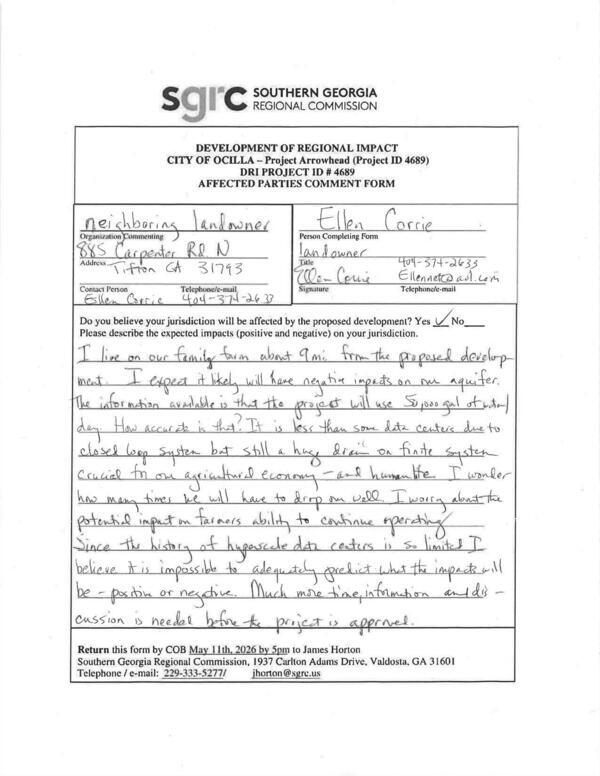 sgrc SOUTHERN GEORGIA
REGIONAL COMMISSION
DEVELOPMENT OF REGIONAL IMPACT
CITY OF OCILLA – Project Arrowhead (Project ID 4689)
DRI PROJECT ID # 4689
AFFECTED PARTIES COMMENT FORM
neighboring landowner
Organization Commenting
885 Carpenter Rd. N
Address Tifton GA 31793
Contact Person Telephone/e-mail
Ellen Corrie 404-374-2633
Ellen Corrie
Person Completing Form
landowner
Title 404-374-2633
Ellen Corrie Ellennet@aol.com
Signature Telephone/e-mail
Do you believe your jurisdiction will be affected by the proposed development? Yes ✓ No
Please describe the expected impacts (positive and negative) on your jurisdiction.
I live on our family farm about 9 mi. from the proposed develop-
ment. I expect it likely will have negative impacts on our aquifer.
The information available is that the project will use 50,000 gal of water/
day. How accurate is that? It is less than some data centers due to
closed loop system but still a huge drain on finite system
crucial for our agricultural economy – and human life. I wonder
how many times we will have to drop our well. I worry about the
potential impact on farmers ability to continue operating.
Since the history of hyperscale data centers is so limited I
believe it is impossible to adequately predict what the impacts will
be – positive or negative. Much more time, information and dis-
cussion is needed before the project is approved.
Return this form by COB May 11th, 2026 by 5pm to James Horton
Southern Georgia Regional Commission, 1937 Carlton Adams Drive, Valdosta, GA 31601
Telephone / e-mail: 229-333-5277/ jhorton@sgrc.us